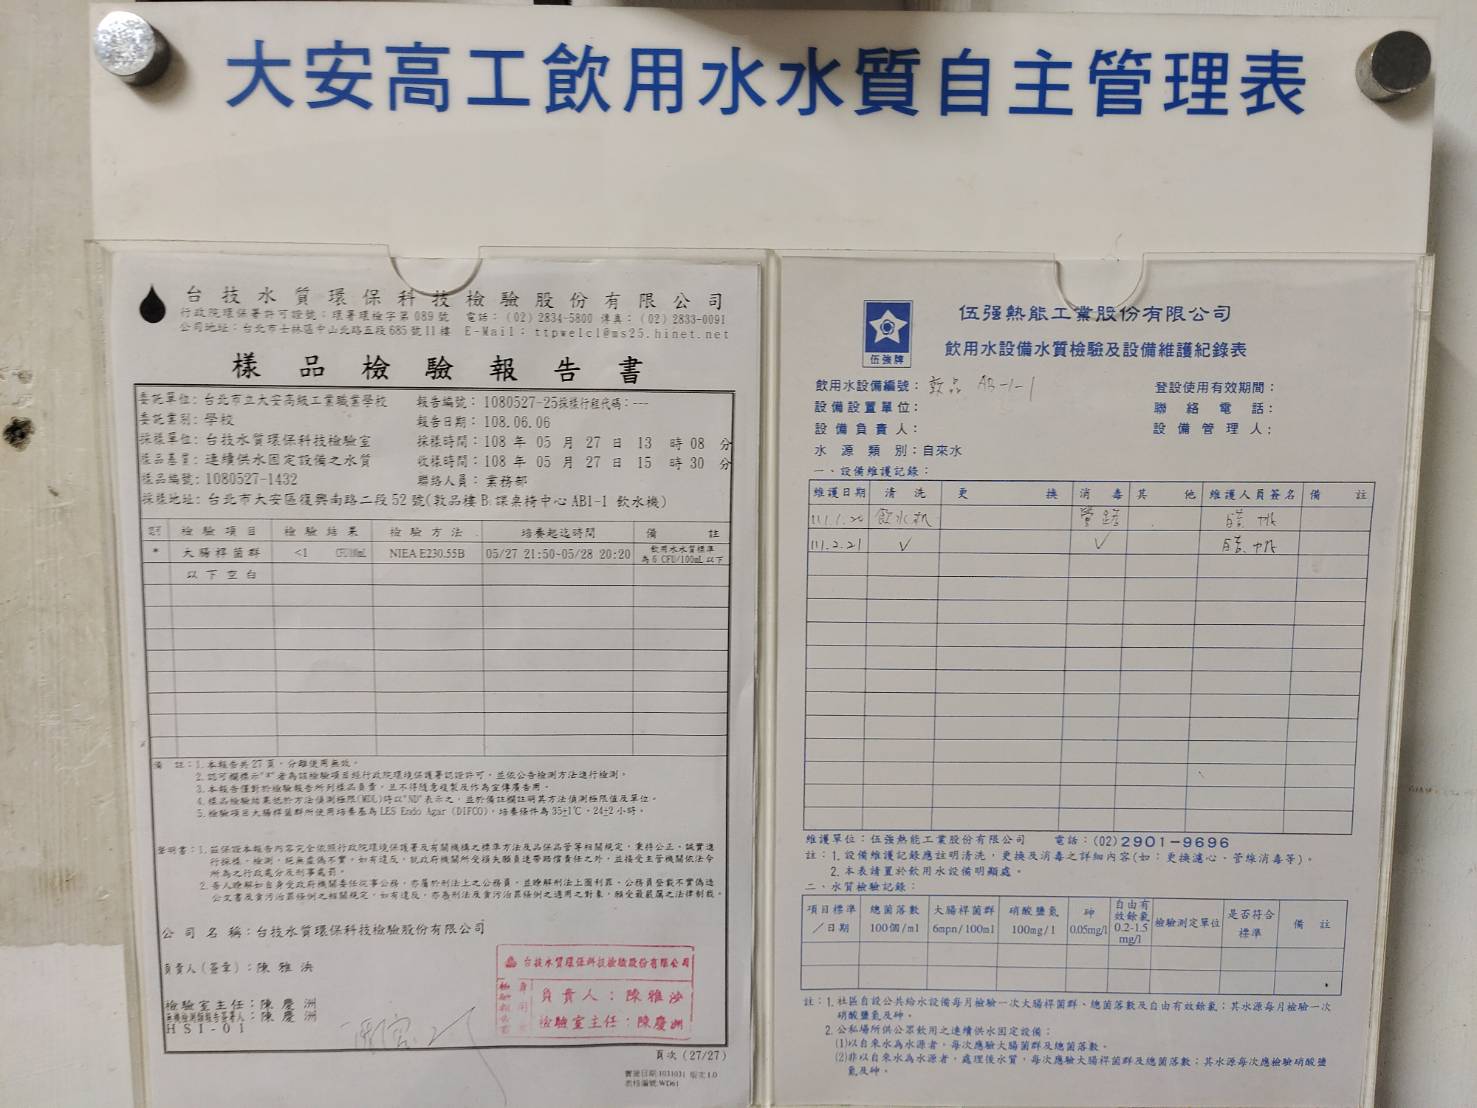 大安高工飲用水水質自主管理表
台技水質環保科技檢驗股份有限公司
行政院環保署許可證號：環署環檢字第089號 電話：(02) 2834-5800 傳真：(02) 2833-0091
公司地址：台北市士林區中山北路五段685號11樓 E-Mail： ttpwelcl@ms25.hinet.net
樣品檢驗報告書
委託單位：台北市立大安高級工業職業學校 報告編號：1080527-25採樣行程代碼：---
委託業別：學校 報告日期：108.06.06
採樣單位：台技水質環保科技檢驗室 採樣時間：108 年 05 月 27 日 13 時 08 分
樣品基質：連續供水固定設備之水質 收樣時間：108 年 05 月 27 日 15 時 30 分
樣品編號：1080527-1432 聯絡人員：業務部
採樣地址：台北市大安區復興南路二段52號(敦品樓B.課桌椅中心AB1-1 飲水機)
檢驗項目 檢驗結果 檢驗方法 培養起迄時間 備註
* 大腸桿菌群 <1 CFU/100mL NIEA E230.55B 05/27 21:50-05/28 20:20 飲用水水質標準
為6 CFU/100mL以下
以下空白
備 註：1.本報告共27頁，分離使用無效。
2.認可欄標示"*"者為該檢驗項目經行政院環境保護署認證許可，並依公告檢測方法進行檢測。
3.本報告僅對於檢驗報告所列樣品負責，且不得隨意複製及作為宣傳廣告用。
4.樣品檢驗結果低於方法偵測極限(MDL)時以"ND"表示之，並於備註欄註明其方法偵測極限值及單位。
5.檢驗項目大腸桿菌群所使用培養基為LES Endo Agar (DIFCO)，培養條件為35±1℃，24±2小時。
聲明書：1.茲保證本報告內容完全依照行政院環境保護署及有關機構之標準方法及品保品管等相關規定，秉持公正、誠實進
行採樣、檢測，絕無虛偽不實，如有違反，就政府機關所受損失願負連帶賠償責任之外，並接受主管機關依法令
所為之行政處分及刑事處罰。
2.吾人瞭解如自身受政府機關委任從事公務，亦屬於刑法上之公務員，並瞭解刑法上圖利罪、公務員登載不實偽造
公文書及貪污治罪條例之相關規定，如有違反，亦為刑法及貪污治罪條例之適用之對象，願受最嚴厲之法律制裁。
公司名稱：台技水質環保科技檢驗股份有限公司
負責人(簽章)：陳雅浜
檢驗室主任：陳慶洲
無機檢測類報告簽署人：陳慶洲
HSI-01
台技水質環保科技檢驗股份有限公司
負責人：陳雅沙
檢驗室主任：陳慶洲
頁次 (27/27)
實施日期:1031031 版次:1.0
表格編號:WD61
伍強牌
伍强熱能工業股份有限公司
飲用水設備水質檢驗及設備維護紀錄表
飲用水設備編號：敦品 AB-1-1 登設使用有效期間：
設備設置單位： 聯絡電話：
設備負責人： 設備管理人：
水源類別：自來水
一、設備維護記錄：
維護日期 清洗 更換 消毒 其他 維護人員簽名 備註
111.1.20 飲水机 管路
111.2.21 ✓ ✓
維護單位：伍强熱能工業股份有限公司 電話：(02)2901-9696
註：1.設備維護記錄應註明清洗，更換及消毒之詳細內容(如：更換濾心、管線消毒等)。
2.本表請置於飲用水設備明顯處。
二、水質檢驗記錄：
項目標準／日期 總菌落數 100個/ml 大腸桿菌群 6mpn/100ml 硝酸鹽氮 100mg/1 砷 0.05mg/l 自由有效餘氯 0.2-1.5 mg/l 檢驗測定單位 是否符合標準 備註
註：1.社區自設公共給水設備每月檢驗一次大腸桿菌群、總菌落數及自由有效餘氯；其水源每月檢驗一次
硝酸鹽氮及砷。
2.公私場所供公眾飲用之連續供水固定設備：
(1)以自來水為水源者，每次應驗大腸菌群及總菌落數。
(2)非以自來水為水源者，處理後水質，每次應驗大腸桿菌群及總菌落數；其水源每次應檢驗硝酸鹽
氮及砷。